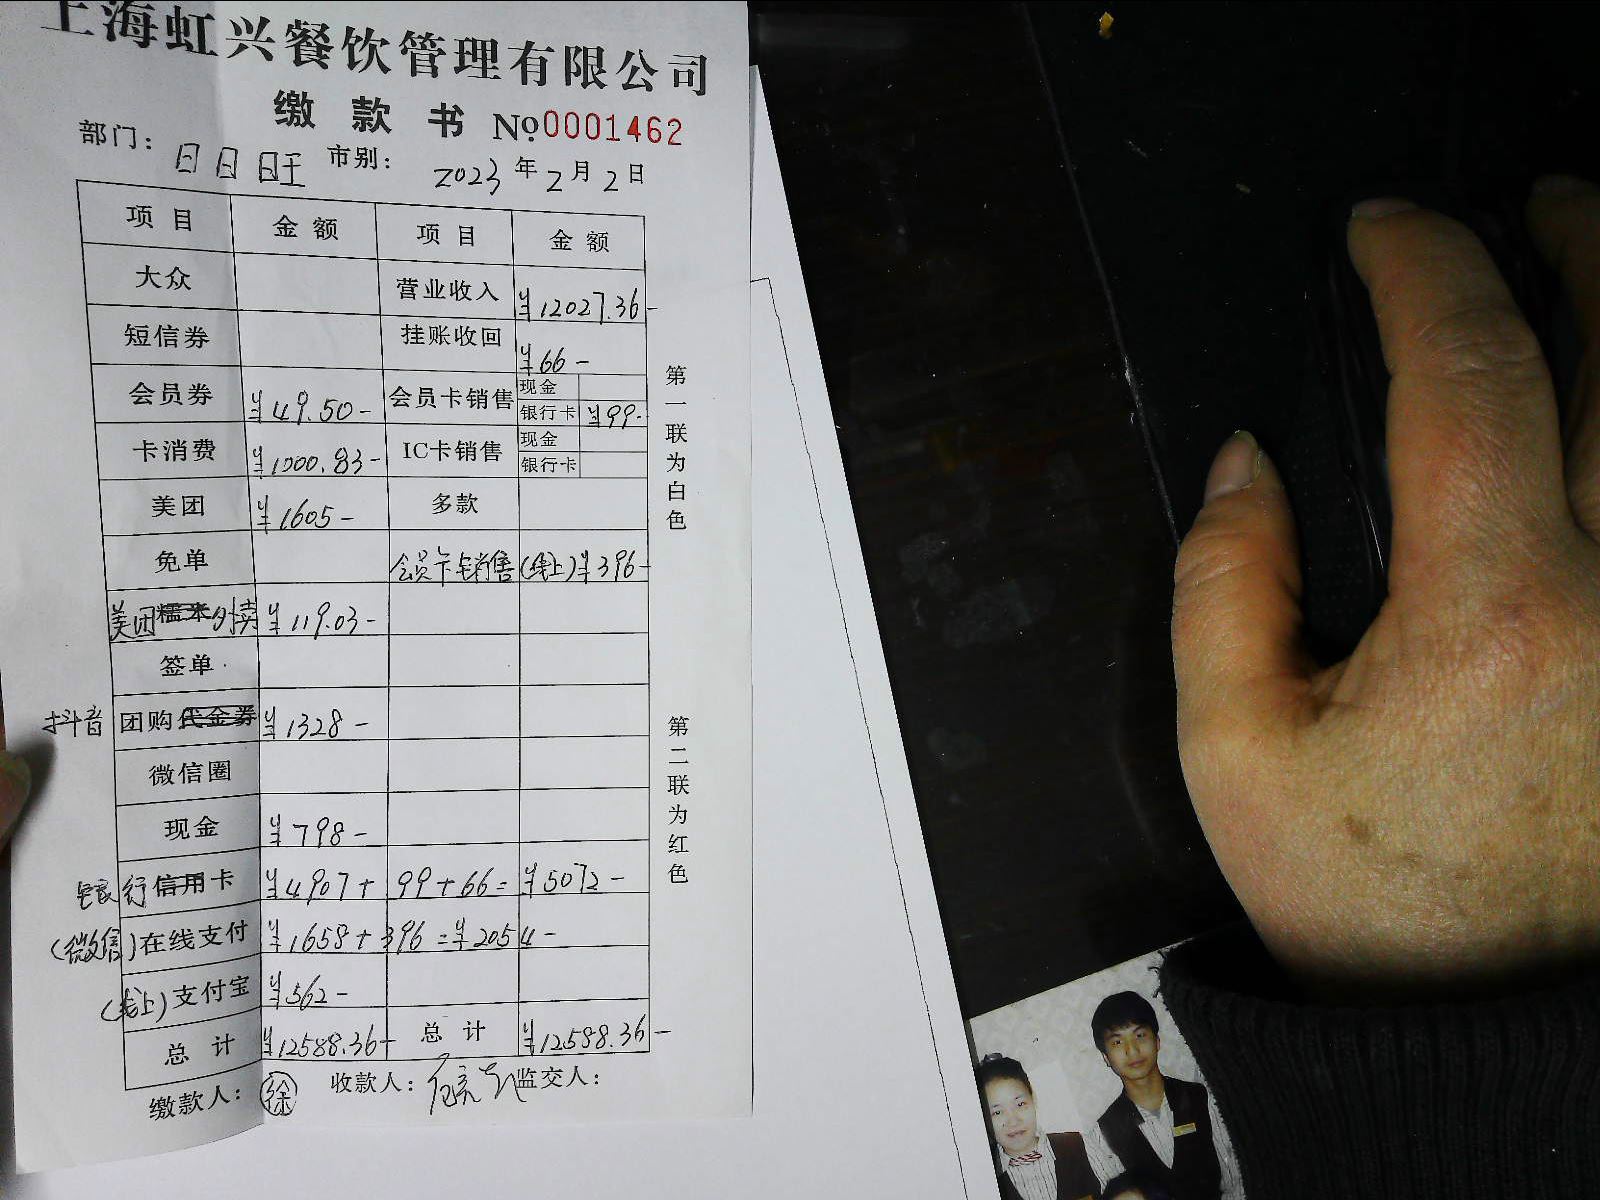 上海虹兴餐饮管理有限公司
缴款书 №0001462
部门: 日日旺 市别: 2023年2月2日
项目 金额 项目 金额
大众 营业收入 ¥12027.36-
短信券 挂账收回 ¥66-
会员券 ¥49.50- 会员卡销售 现金
银行卡 ¥99-
卡消费 ¥1000.83- IC卡销售 现金
银行卡
美团 ¥1605- 多款
免单 会员卡销售(线上) ¥396-
美团糯米外卖 ¥119.03-
签单
抖音 团购代金券 ¥1328-
微信圈
现金 ¥798-
银行信用卡 ¥4907+99+66=¥5072-
(微信)在线支付 ¥1658+396=¥2054-
(线上)支付宝 ¥562-
总计 ¥12588.36- 总计 ¥12588.36-
缴款人: 徐 收款人: 监交人:
第一联为白色
第二联为红色